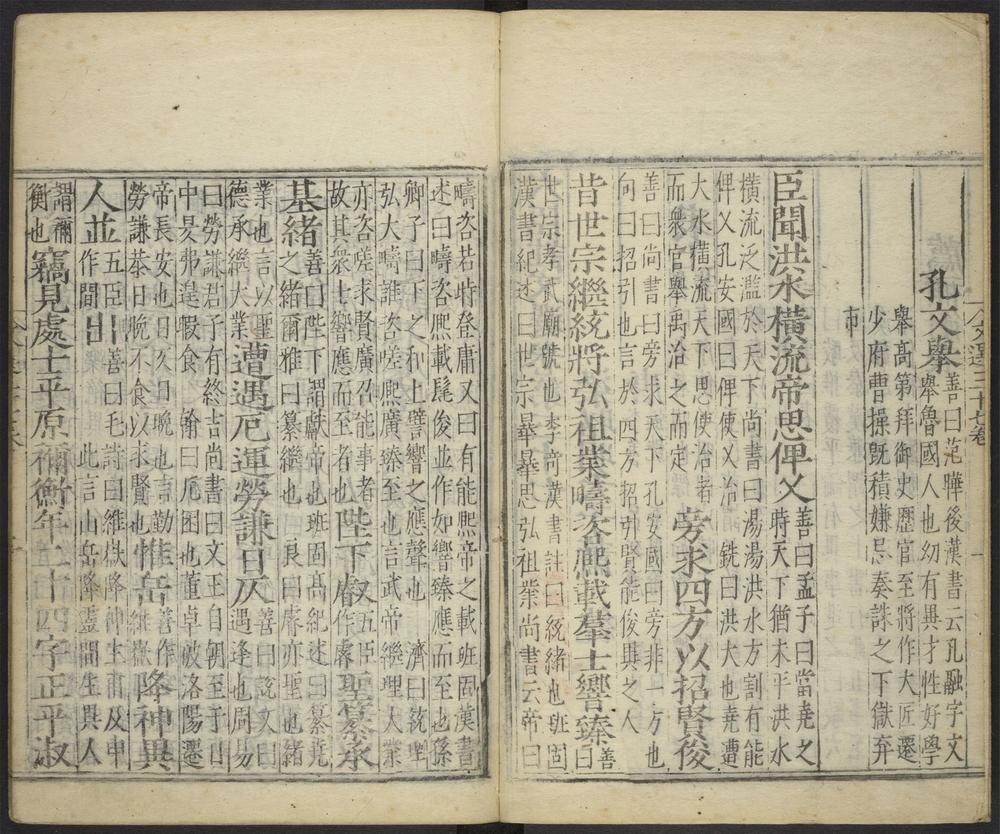 文選三十七卷 一
孔文舉善曰范曄後漢書云孔融字文舉魯國人也幼有異才性好學
舉高第拜御史歷官至將作大匠遷少府曹操既積嫌忌奏誅之下獄弃
市
臣聞洪水橫流帝思俾乂善曰孟子曰當堯之時天下猶未平洪水
橫流泛濫於天下尚書曰湯湯洪水方割有能俾乂孔安國曰俾使乂治 銑曰洪大也堯遭
大水橫流天下思使治者而衆官舉禹治之而定旁求四方以招賢俊
善曰尚書曰旁求天下孔安國曰旁非一方也向曰招引也言於四方招引賢能俊異之人
昔世宗繼統將弘祖業疇咨熙載羣士響臻善曰
世宗孝武廟號也李奇漢書註曰統緒也班固漢書紀述曰世宗曅曅思弘祖業尚書云帝曰
疇咨若時登庸又曰有能熙帝之載班固漢書述曰疇咨熙載髦俊並作如響臻應而至也孫
卿子曰下之和上譬響之應聲也 濟曰統理弘大疇誰咨嗟熙廣臻至也言武帝繼理大業
亦咨嗟求賢廣召能事者故其衆士響應而至者也陛下叡五臣作睿聖纂承
基緒善曰陛下謂獻帝也班固高紀述曰纂堯之緒爾雅曰纂繼也 良曰睿亦聖也緒
業也言以聖德承繼大業遭遇厄運勞謙日仄善曰說文曰遇逢也周易
曰勞謙君子有終吉尚書曰文王自朝至于日中昃弗遑暇食 翰曰厄困也董卓敗洛陽遷
帝長安也日仄日晚也言勤勞謙恭日晚不食以求賢也惟岳善作維嶽降神異
人並五臣作間出善曰毛詩曰維嶽降神生甫及申此言山岳降靈間生異人
謂禰衡也竊見處士平原禰衡年二十四字正平淑